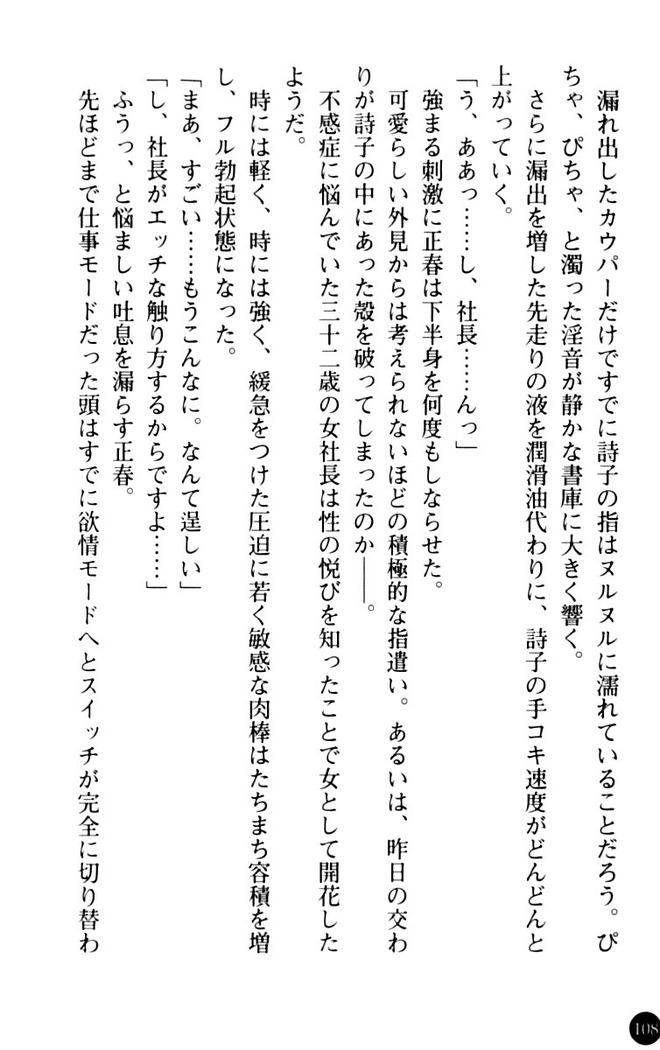 漏れ出したカウパーだけですでに詩子の指はヌルヌルに濡れていることだろう。ぴ
ちゃ、ぴちゃ、と濁った淫音が静かな書庫に大きく響く。
さらに漏出を増した先走りの液を潤滑油代わりに、詩子の手コキ速度がどんどんと
上がっていく。
「う、ああっ……し、社長……んっ」
強まる刺激に正春は下半身を何度もしならせた。
可愛らしい外見からは考えられないほどの積極的な指遣い。あるいは、昨日の交わ
りが詩子の中にあった殻を破ってしまったのか――。
不感症に悩んでいた三十二歳の女社長は性の悦びを知ったことで女として開花した
ようだ。
時には軽く、時には強く、緩急をつけた圧迫に若く敏感な肉棒はたちまち容積を増
し、フル勃起状態になった。
「まあ、すごい……もうこんなに。なんて逞しい」
「し、社長がエッチな触り方するからですよ……」
ふうっ、と悩ましい吐息を漏らす正春。
先ほどまで仕事モードだった頭はすでに欲情モードへとスイッチが完全に切り替わ
108